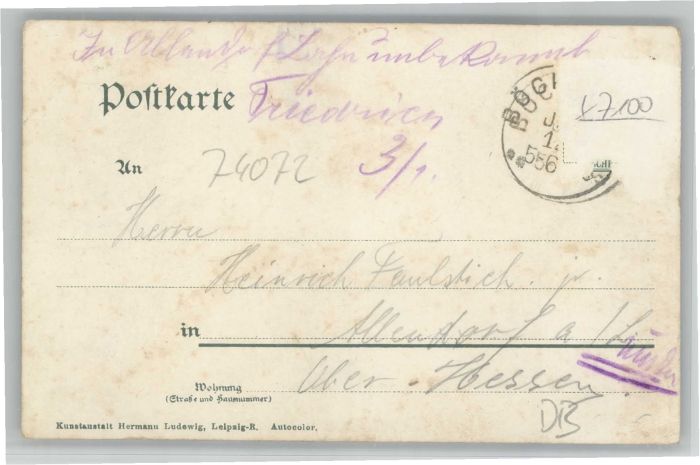 In Allendorf Lahn unbekannt
Postkarte Friedrich
BÖGI
J.
1
556
L7100
An 74072 3/1.
Herrn
Heinrich Faulstich jr.
in Allendorf a/L
Ober-Hessen.
Wohnung
(Straße und Hausnummer)
DB
Kunstanstalt Hermann Ludewig, Leipzig-R. Autocolor.